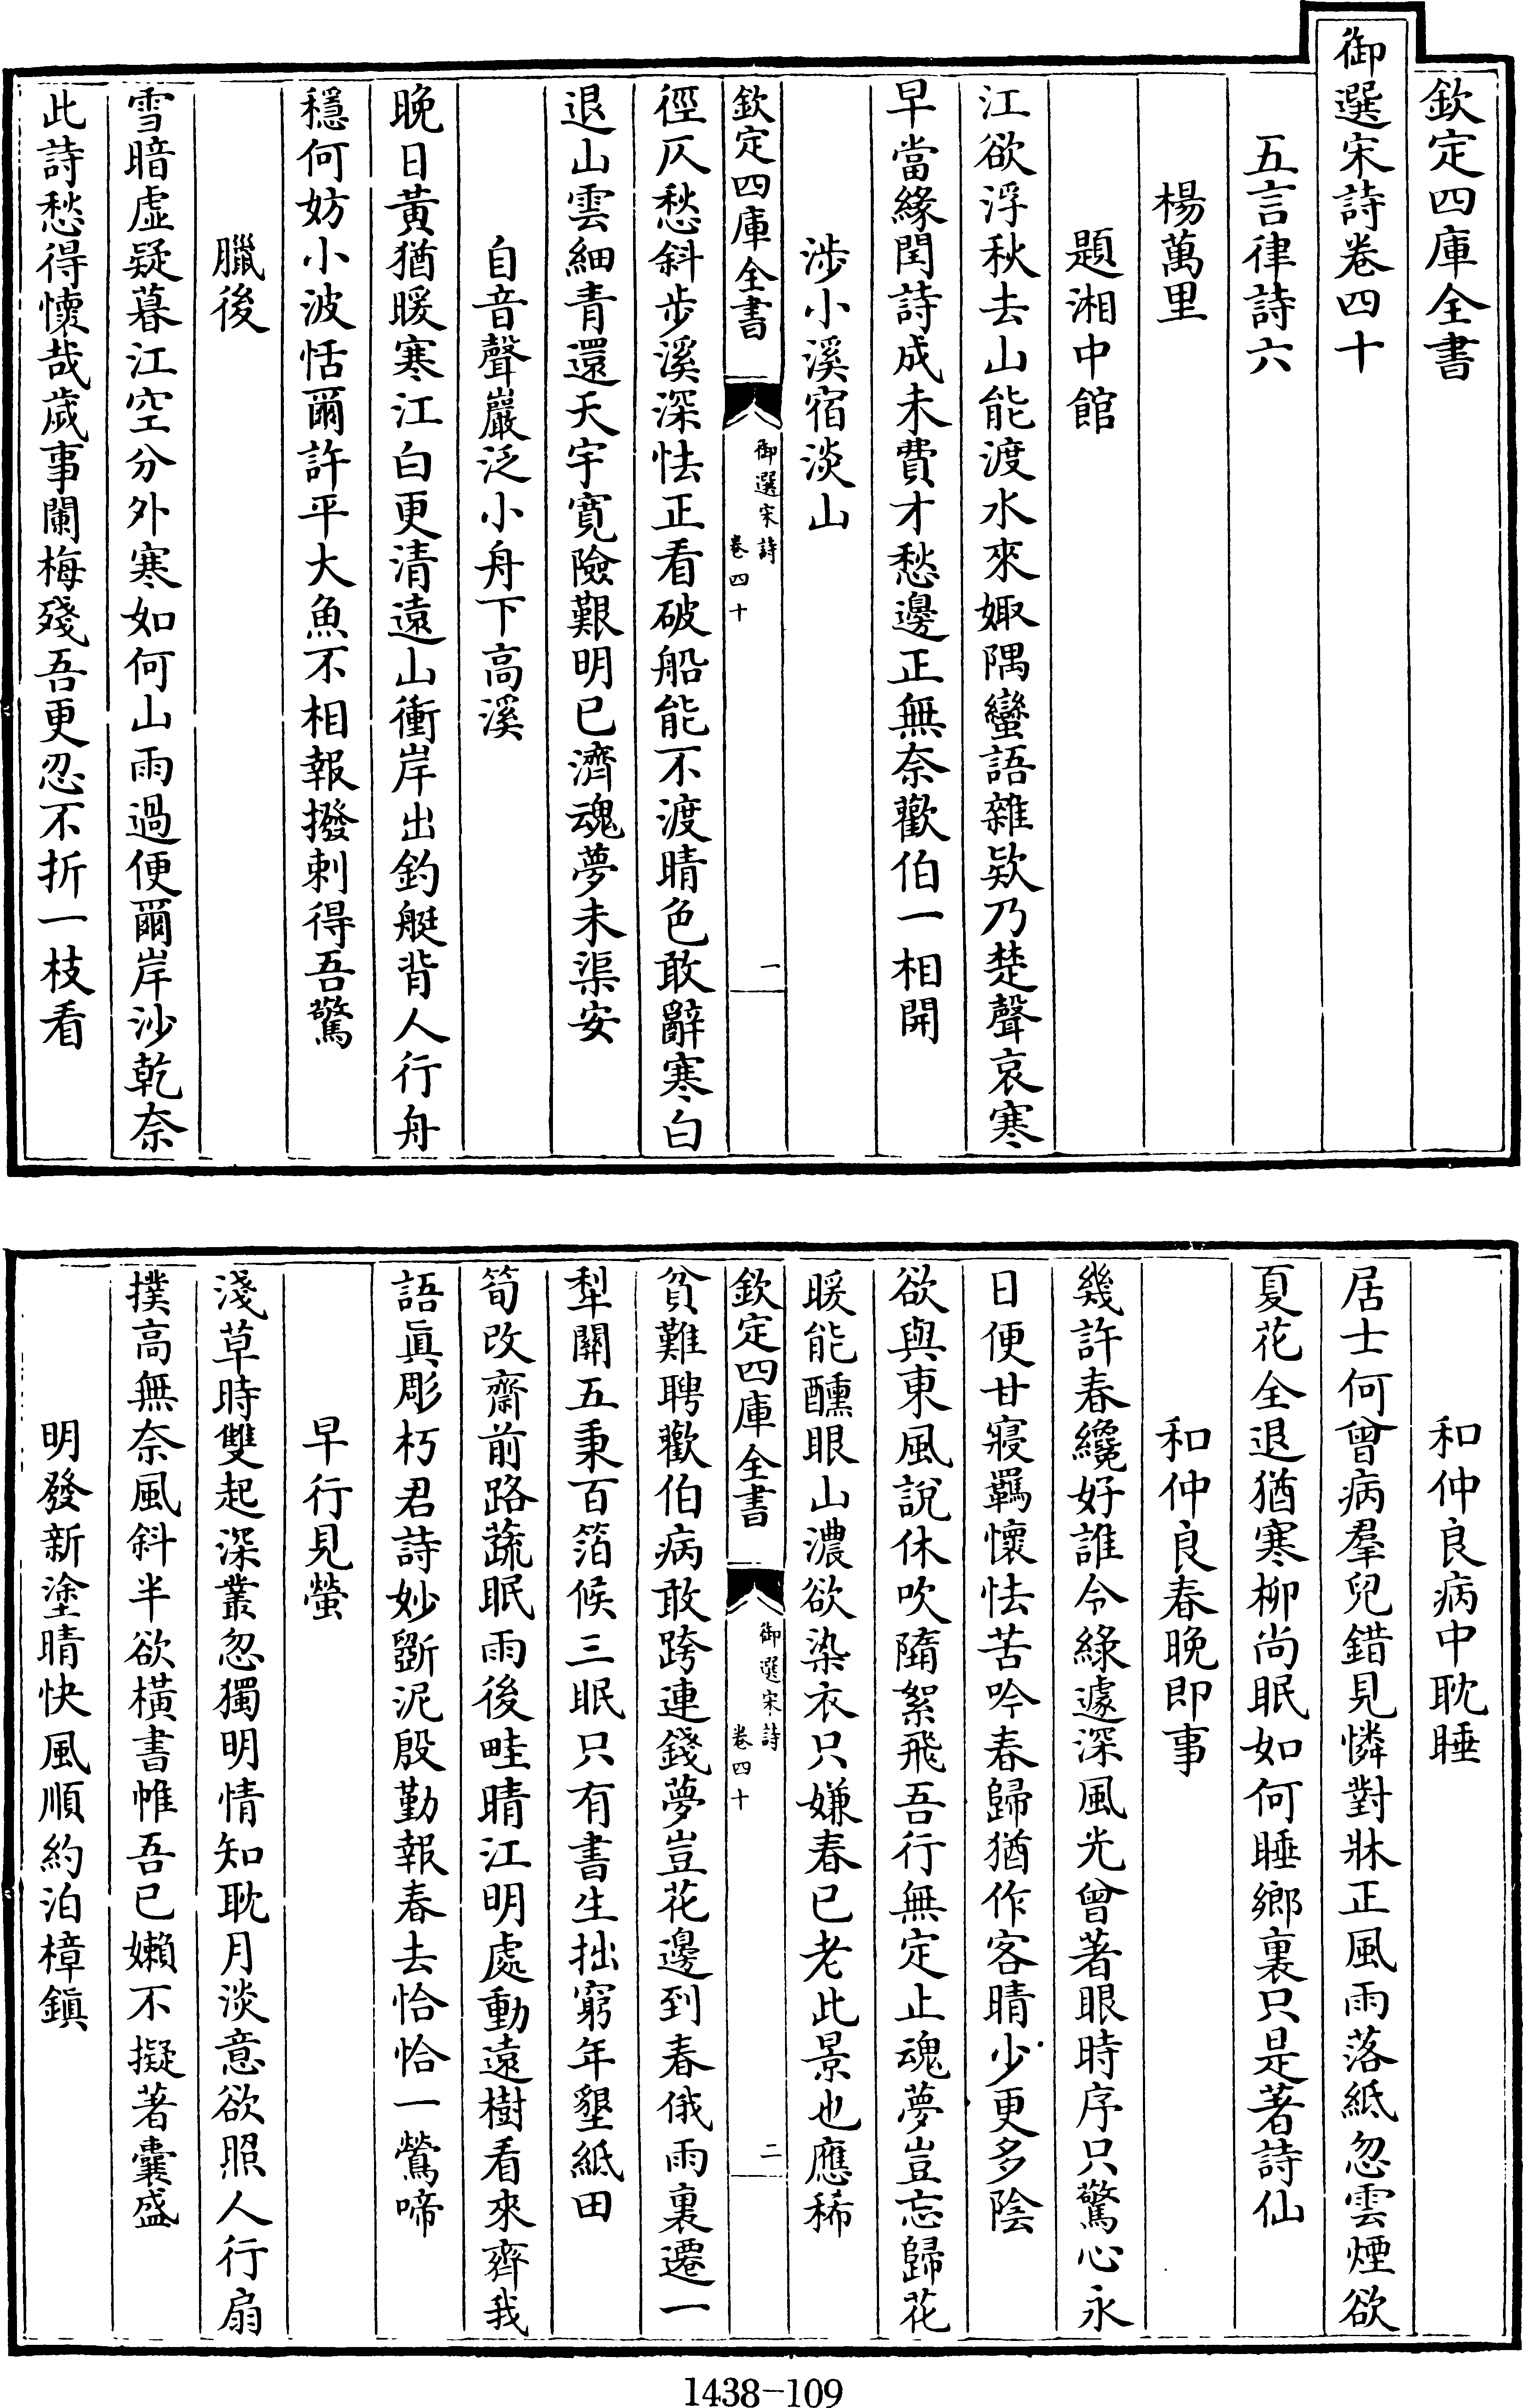 欽定四庫全書
御選宋詩卷四十
五言律詩六
楊萬里
題湘中館
江欲浮秋去山能渡水來娵隅蠻語雜欵乃楚聲哀寒
早當緣閏詩成未費才愁邊正無奈歡伯一相開
涉小溪宿淡山
欽定四庫全書
御選宋詩
卷四十
一
徑仄愁斜步溪深怯正看破船能不渡晴色敢辭寒白
退山雲細青還天宇寛險艱明已濟魂夢未渠安
自音聲巖泛小舟下高溪
晚日黃猶暖寒江白更清遠山衝岸出釣艇背人行舟
穩何妨小波恬爾許平大魚不相報撥剌得吾驚
臘後
雪暗虛疑暮江空分外寒如何山雨過便爾岸沙乾奈
此詩愁得懷哉歲事闌梅殘吾更忍不折一枝看
和仲良病中耽睡
居士何曾病羣兒錯見憐對牀正風雨落紙忽雲煙欲
夏花全退猶寒柳尚眠如何睡鄉裏只是著詩仙
和仲良春晚即事
幾許春纔好誰令綠遽深風光曾著眼時序只驚心永
日便甘寢羈懷怯苦吟春歸猶作客晴少更多陰
欲與東風說休吹隋絮飛吾行無定止魂夢豈忘歸花
暖能醺眼山濃欲染衣只嫌春已老此景也應稀
欽定四庫全書
御選宋詩
卷四十
二
貧難聘歡伯病敢跨連錢夢豈花邊到春俄雨裏遷一
犁關五秉百箔候三眠只有書生拙窮年墾紙田
筍改齋前路蔬眠雨後畦晴江明處動遠樹看來齊我
語真彫朽君詩妙斵泥殷勤報春去恰恰一鶯啼
早行見螢
淺草時雙起深叢忽獨明情知耽月淡意欲照人行扇
撲高無奈風斜半欲橫書帷吾已嬾不擬著囊盛
明發新塗晴快風順約泊樟鎮
1438-109